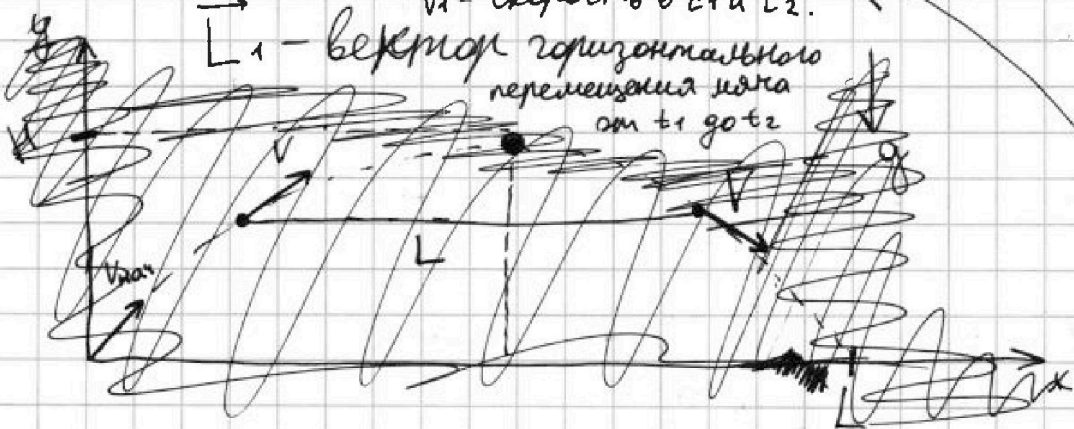 V₁ - скорость в t₁ и t₂.
L₁ - вектор горизонтального
перемещения мяча
от t₁ до t₂
y
V
V
g
L
Vнач
x
L